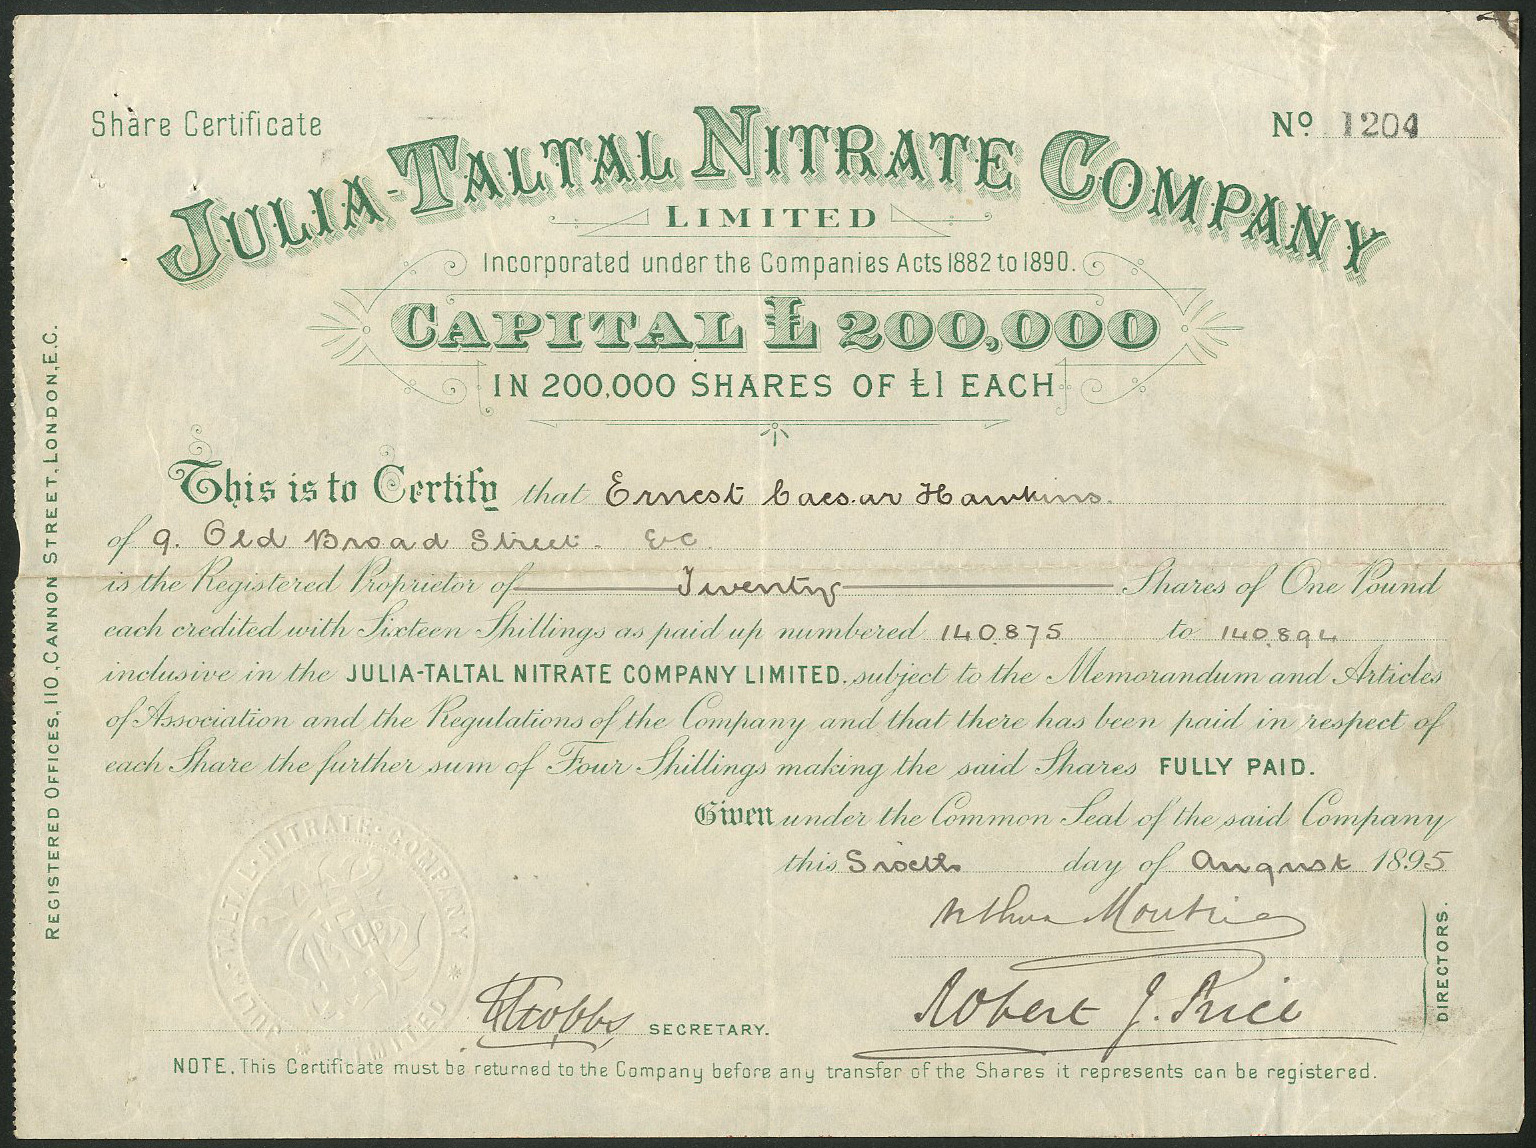 Share Certificate
No 1204
JULIA-TALTAL NITRATE COMPANY
LIMITED
Incorporated under the Companies Acts 1882 to 1890.
CAPITAL £200,000
IN 200,000 SHARES OF £1 EACH
This is to Certify that Ernest Caesar Hawkins.
of 9. Old Broad Street. E.C.
is the Registered Proprietor of Twenty Shares of One Pound
each credited with Sixteen Shillings as paid up numbered 140,875 to 140,894
inclusive in the JULIA-TALTAL NITRATE COMPANY LIMITED. subject to the Memorandum and Articles
of Association and the Regulations of the Company and that there has been paid in respect of
each Share the further sum of Four Shillings making the said Shares FULLY PAID.
Given under the Common Seal of the said Company
this Sixth day of August 1895
Robert J. Price
DIRECTORS.
SECRETARY.
NOTE. This Certificate must be returned to the Company before any transfer of the Shares it represents can be registered.
REGISTERED OFFICES, 110, CANNON STREET, LONDON, E.C.
JULIA-TALTAL-NITRATE-COMPANY * LIMITED *